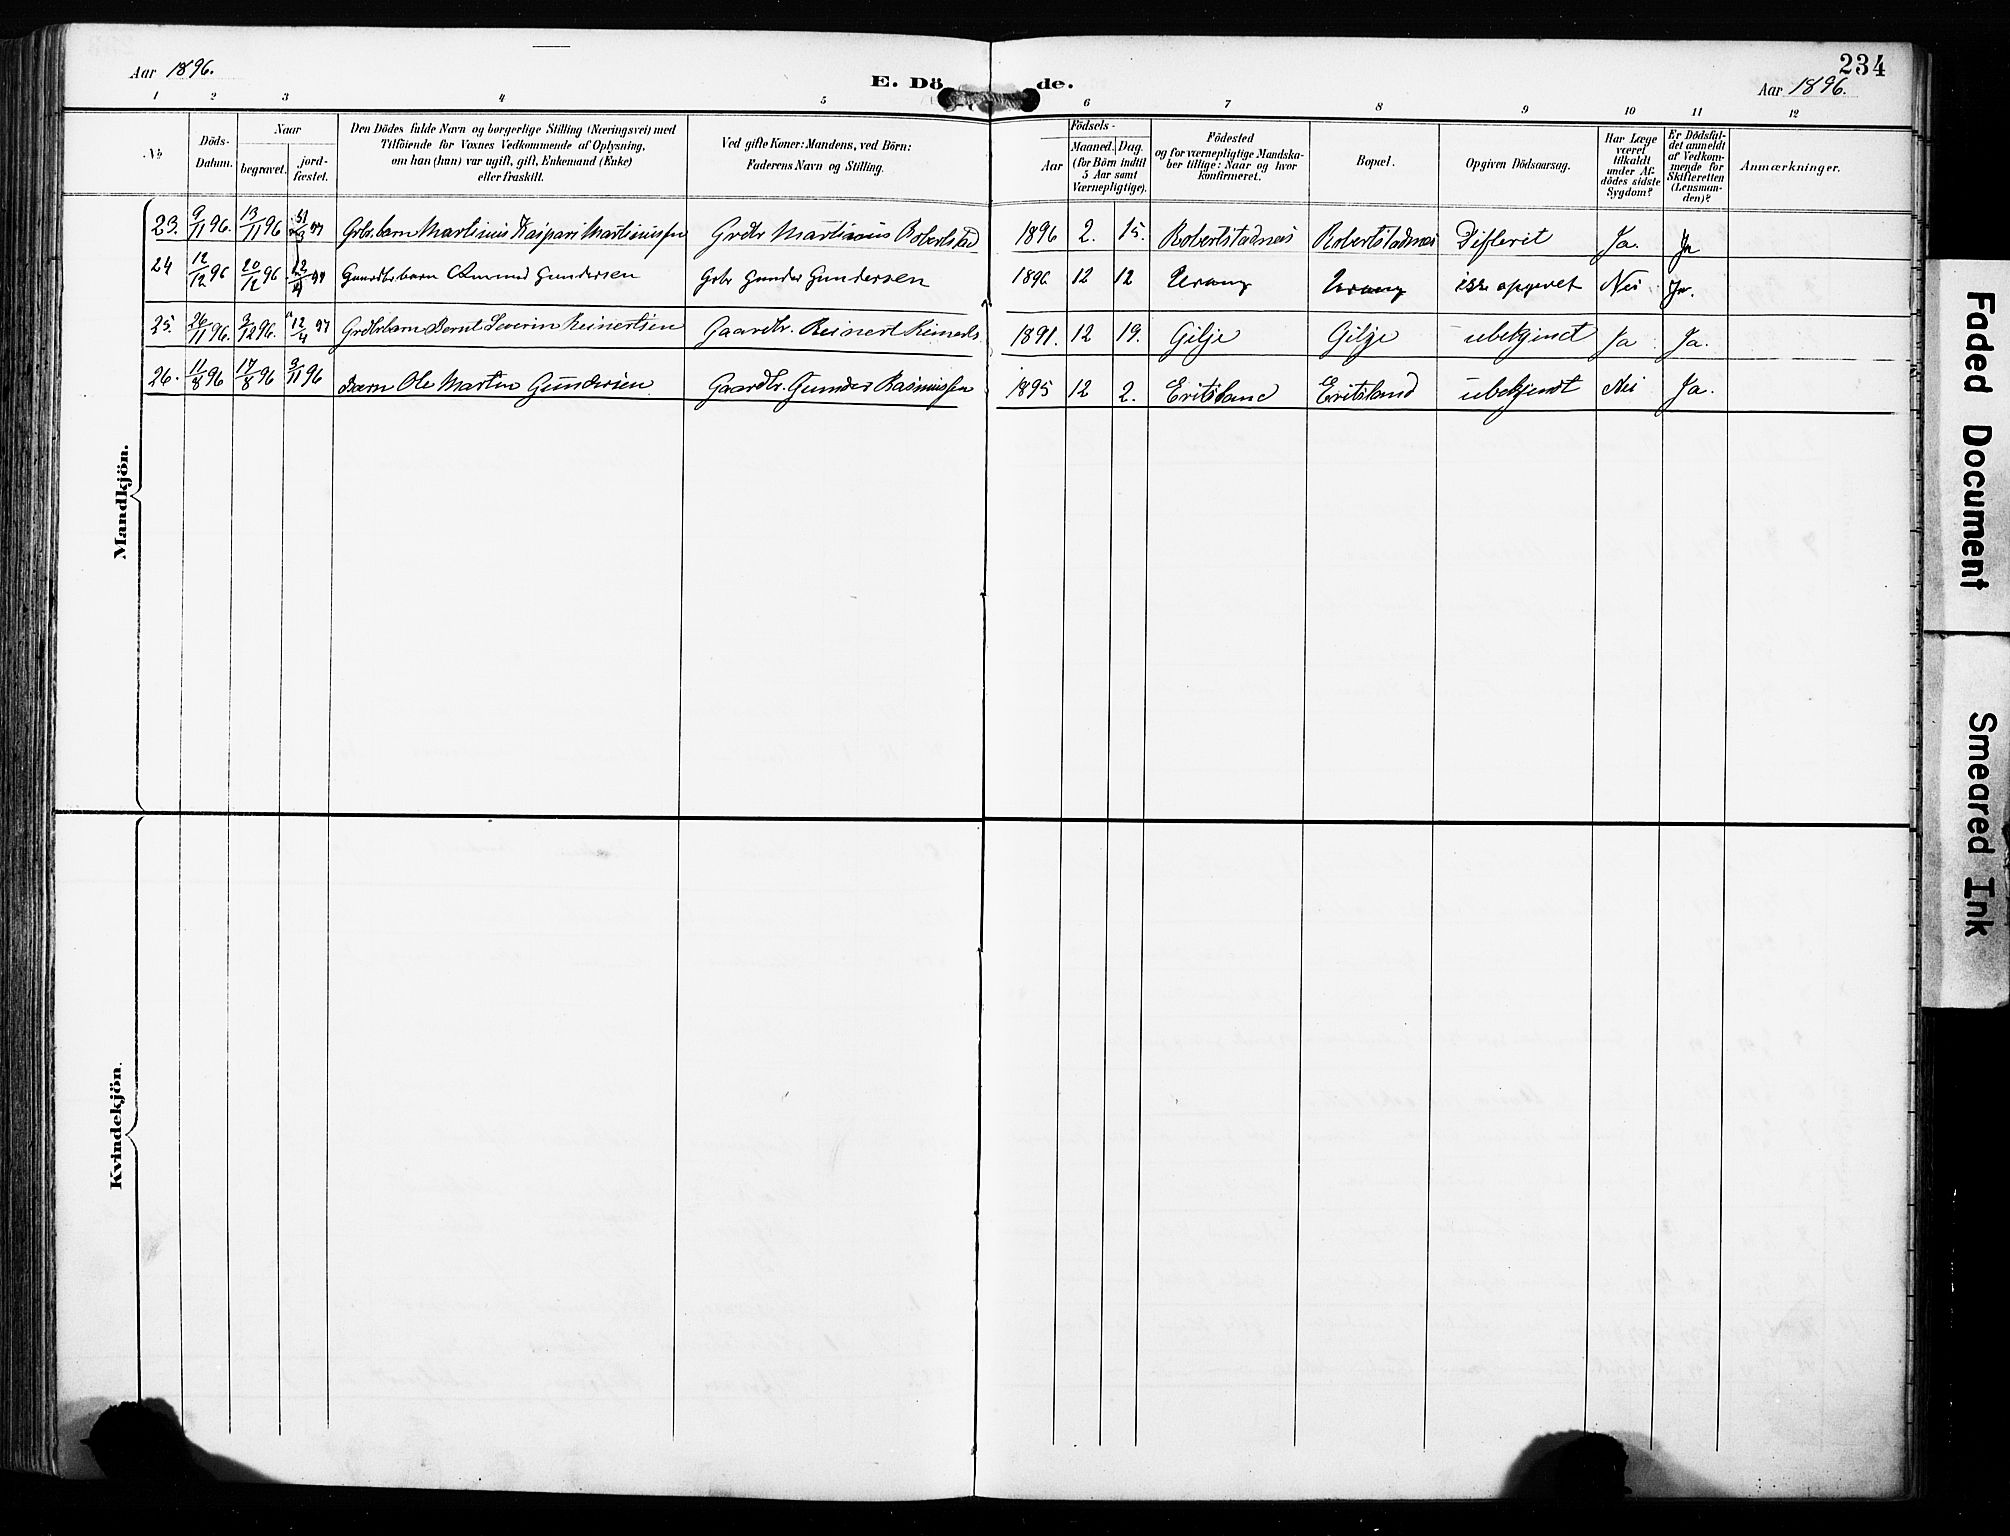 Aar 1896.
E. Dö de.
234
Aar 1896.
1 2 3 4 5 6 7 8 9 10 11 12
No
Döds-Datum.
Naar
begravet.
jord-fæstet.
Den Dödes fulde Navn og borgerlige Stilling (Næringsvei) med
Tilföiende for Voxnes Vedkommende af Oplysning,
om han (hun) var ugift, gift, Enkemand (Enke)
eller fraskilt.
Ved gifte Koner: Mandens, ved Börn:
Faderens Navn og Stilling.
Födsels-
Aar
Maaned. Dag.
(for Börn indtil
5 Aar samt
Værnepligtige).
Födested
og for værnepligtige Mandska-
ber tillige: Naar og hvor
konfirmeret.
Bopæl.
Opgiven Dödsaarsag.
Har Læge
været
tilkaldt
under Af-
dödes sidste
Sygdom?
Er Dödsfal-
det anmeldt
af Vedkom-
mende for
Skifteretten
(Lensman-
den)?
Anmærkninger.
Mandkjön.
23. 9/11 96. 13/11 96 31/3 97 Grbr.barn Martinius Kaspari Martiniussen Grdbr Martinius Robertstad 1896 2. 15. Robertstadnes Robertstadnes Difterit Ja. Ja
24 12/12 96 20/12 96 12/4 97 Gaardbr.barn Amund Gundersen Grbr Gunder Gundersen 1896 12 12 ikke opgivet Nei Ja.
25. 26/11 96. 3/12 96. 12/4 97 Grdbrbarn Bernt Severin Reinertsen Gaardbr. Reinert 1891. 12 19. Gilje Gilje ubekjendt Ja Ja.
26. 11/8 96 17/8 96 9/11 96 Barn Ole Martin Gundersen Gaardbr. Gunder Rasmussen 1895 12 2. Eritsland Eritsland ubekjendt Nei Ja.
Kvindekjön.
Faded Document
Smeared Ink